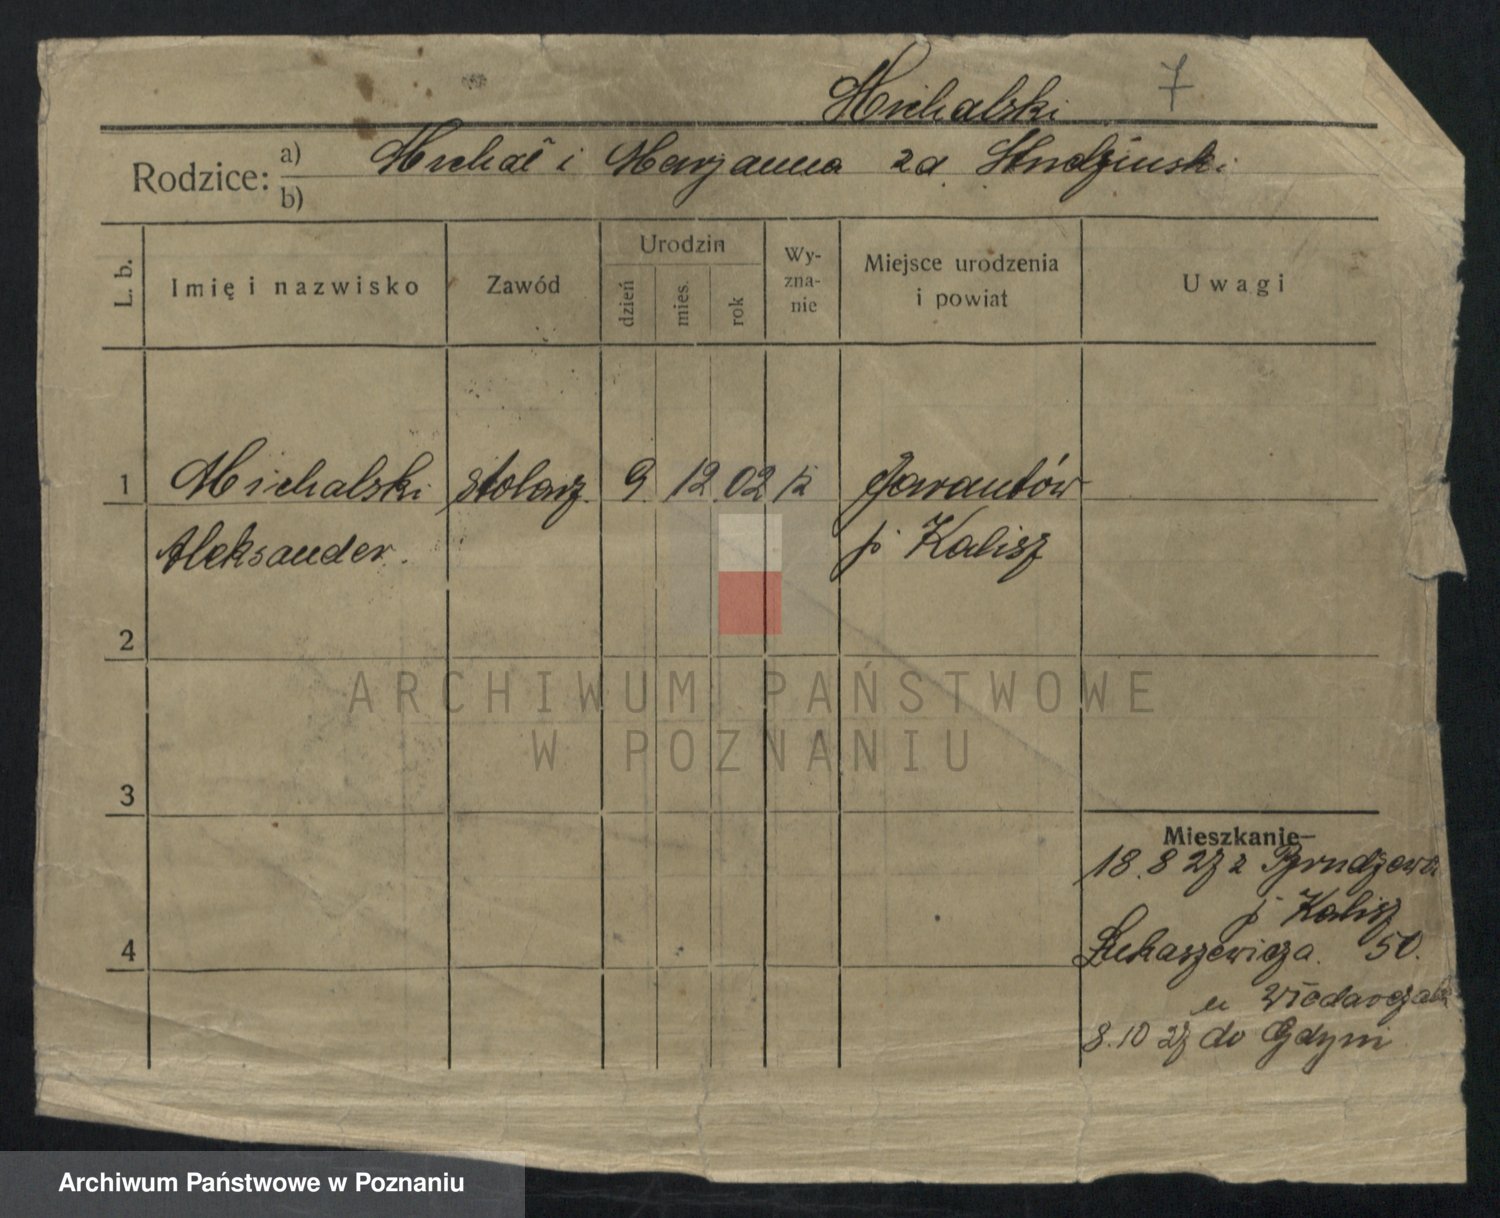 Michalski 7
Rodzice: a) Michał i Marjanna zd. Studzinski
b)
L. b. Imię i nazwisko Zawód Urodzin dzień mies. rok Wy-zna-nie Miejsce urodzenia i powiat Uwagi
1 Michalski stolarz. 9. 12 02 k Jarantów
Aleksander. p. Kalisz
2
3
Mieszkanie
18.8 27 z Brudzewa
p. Kalisz
4 Łukaszewicza. 50.
u
8.10 27 do Gdyni
ARCHIWUM PAŃSTWOWE
W POZNANIU
Archiwum Państwowe w Poznaniu